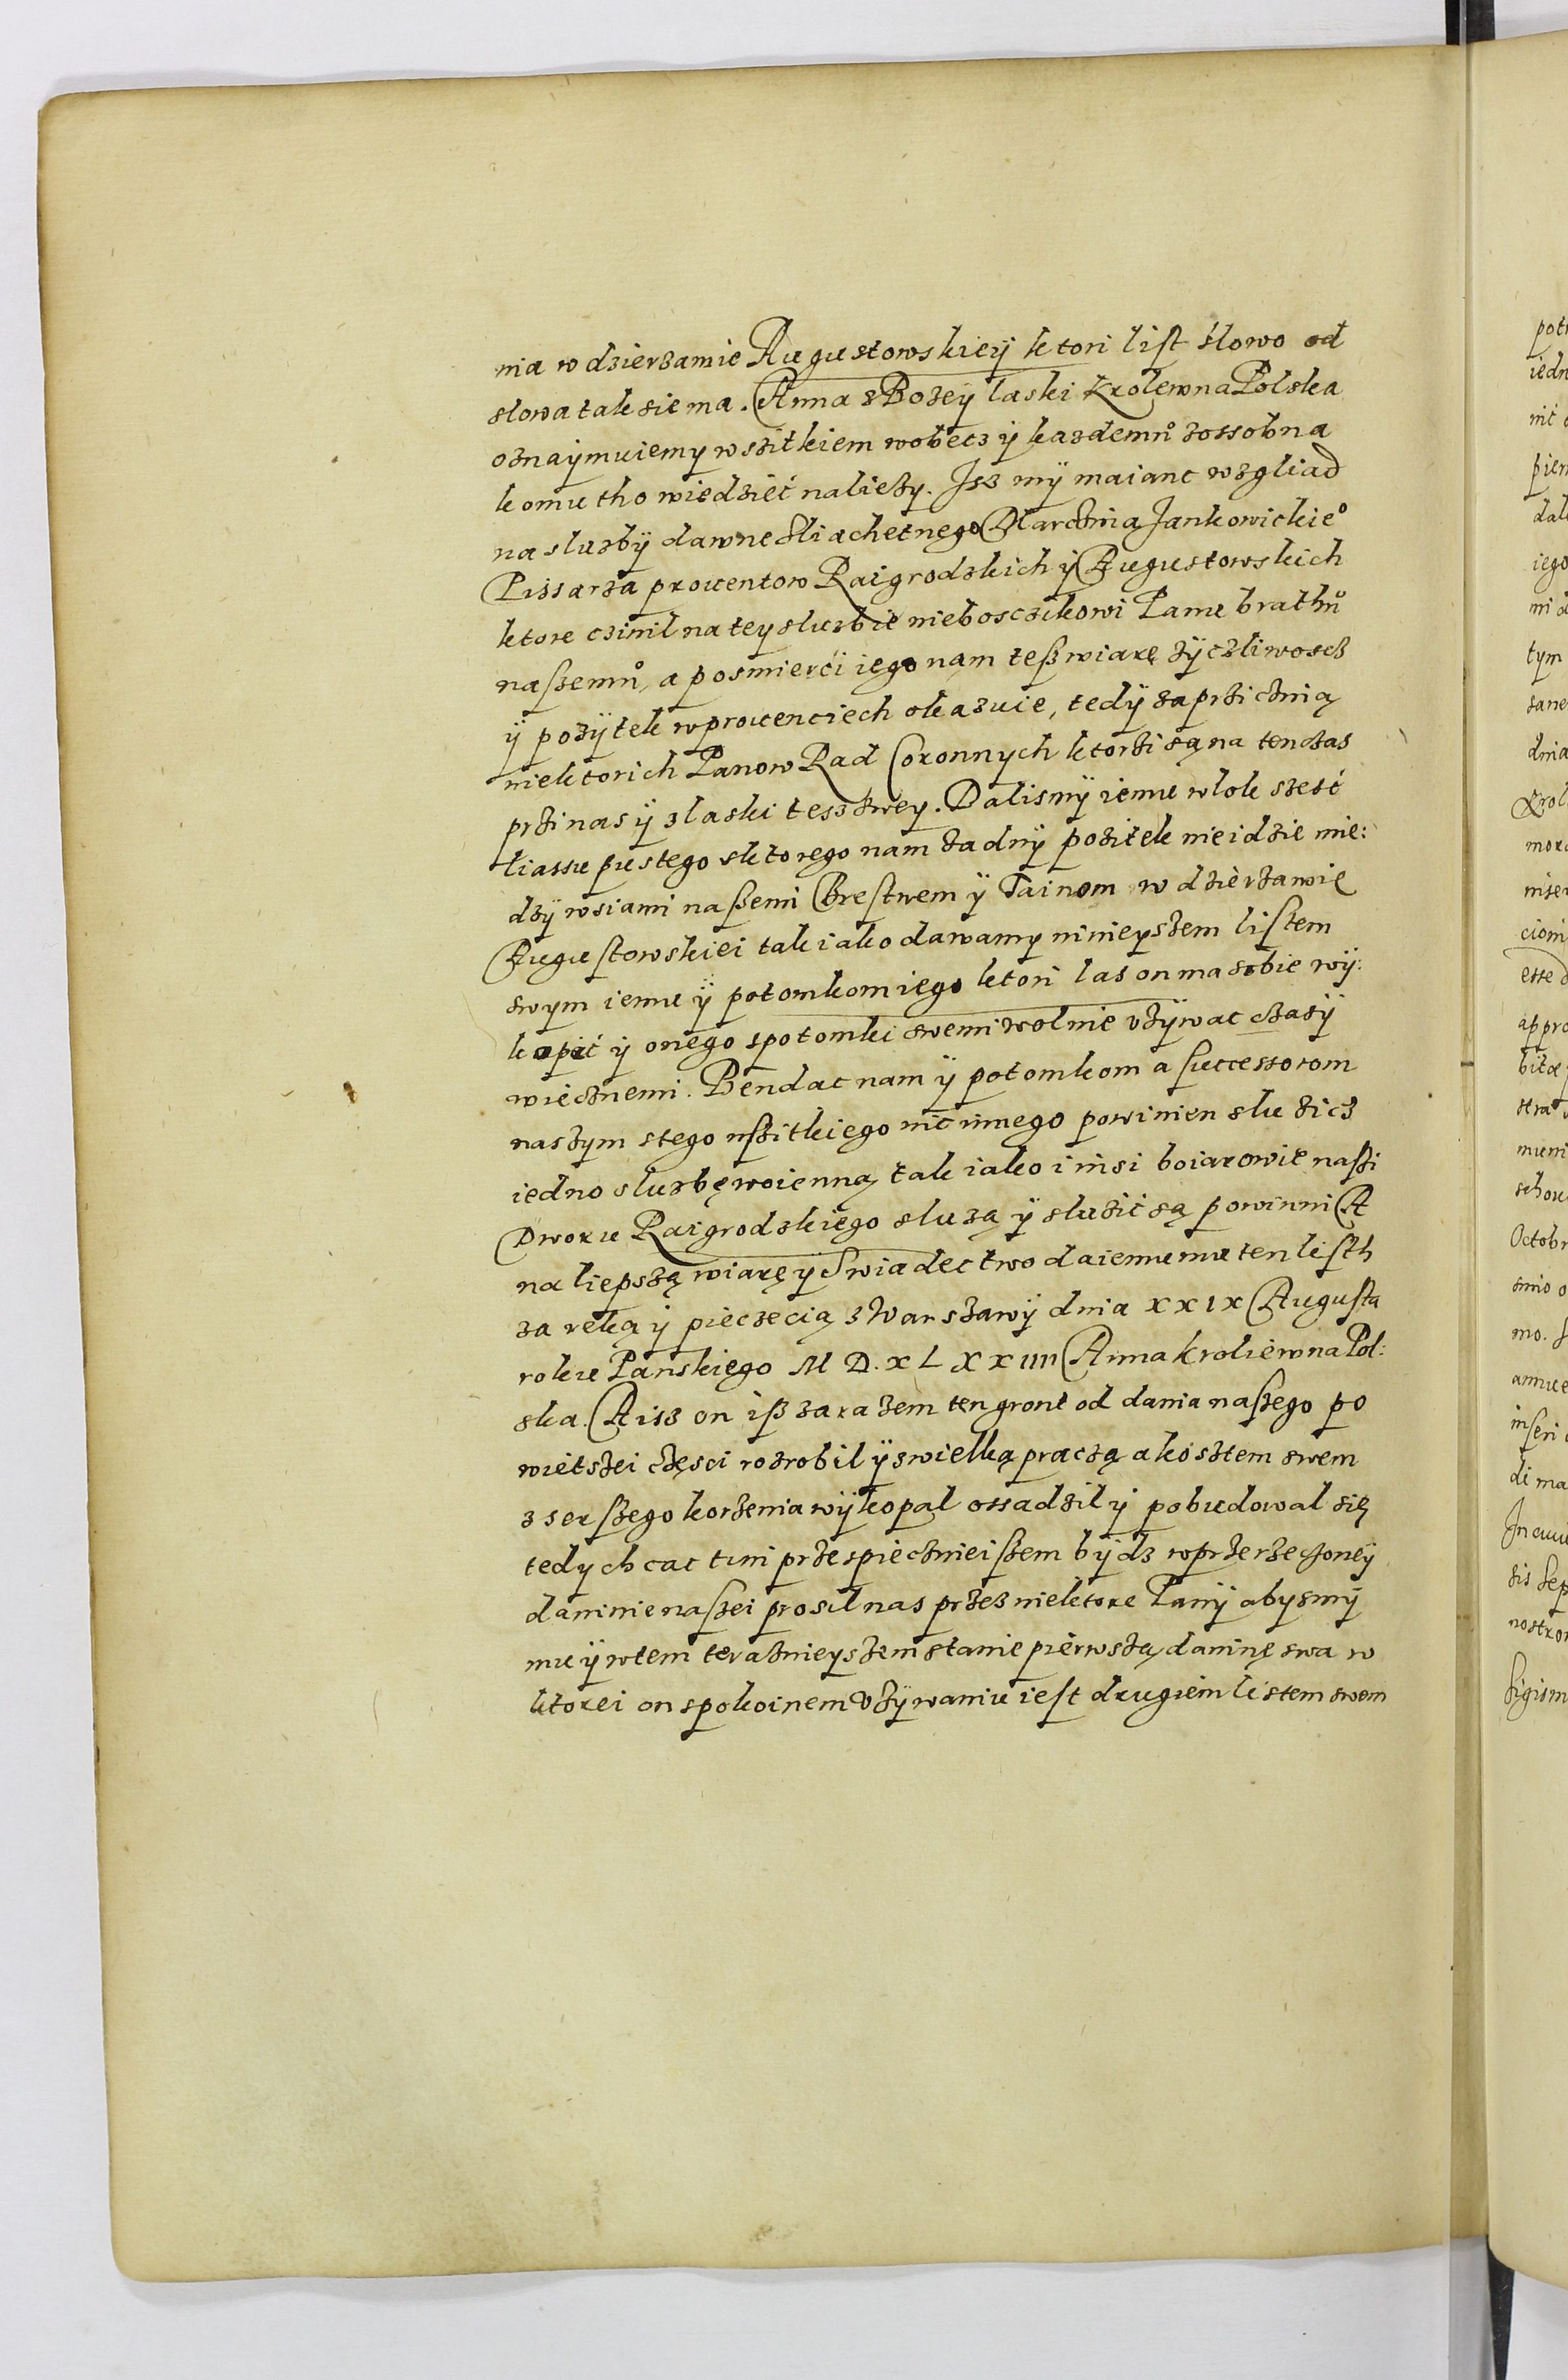 nia w dzierzawie Augustowskieÿ ktori list słowo od
slowa tak sie ma. Anna z Bozeÿ laski Krolewna Polska
oznaÿmuiemy wszitkiem wobecz ÿ kazdemů zossobna
komu tho wiedzieć naliezy. Jsz mÿ maianc wzgliad
na sluzbÿ dawne Sliachetnego Marczina Jankowickie°
Pissarza prowentow Raigrodzkich ÿ Augustowskich
ktore czinil na teÿ sluzbie nieboszczikowi Panu brathů
naszemů, a posmierći iego nąm tesz wiarę zÿczliwoscz
ÿ pozÿtek w prowenciech okazuie, tedÿ za pržicznią
niektorich Panow Rad Coronnych ktorži są na ten czas
prži nas ÿ z laski tesz swey. Dalismÿ iemu wlok szesć
liassu pustego s ktorego nam zadnÿ pozitek nie idzie mie:
dzÿ wsiami naszemi Brestwem ÿ Tainom w dzierzawie
Augustowskiei tak iako dawamy ninieyszem listem
swym iemu ÿ potomkom iego ktori las on ma sobie wÿ:
kopać ÿ onego spotomki swemi wolnie vzÿwac czasÿ
wiecznemi. Bendac nam ÿ potomkom a successorom
naszym stego uszitkiego nic innego powinien sluzicz
iedno sluzbę woienną tak iako i insi boiarowie naszi
Dworu Raigrodzkiego sluzą ÿ sluzić są powinni A
na liepszą wiarę ÿ Swiadectwo daiemu mu ten listh
za ręką ÿ pieczecią z Warszawÿ dnia XXIX Augusta
roku Panskiego M D. X L XX IIII Anna Kroliewna Pol:
ska. A isz on isz zarazem ten gront od dania naszego po
wietszei częsci rozrobil ÿ zwielką praczą a kosztem swem
z serszego korzenia wÿkopal ossadzil ÿ pobudowal się
tedy chcac tim przespieczniei szem bÿdz w przerzeczoneÿ
daninie naszei prosil nas przez niektore Panÿ abysmÿ
mu ÿ wtem teraznieyszem stanie pierwszą daninę swa w
ktorei on spokoinem vzÿwaniu iest drugiem listem swem